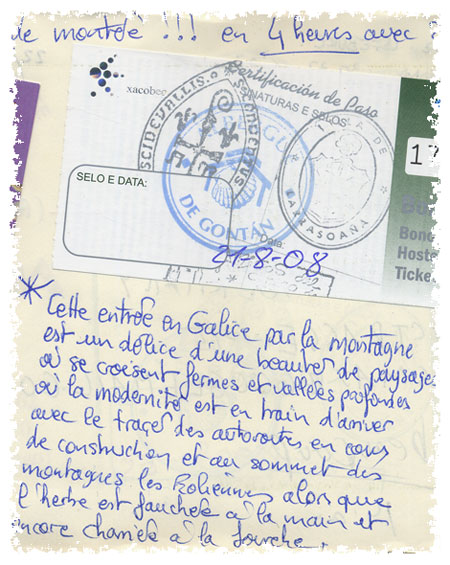 de montée !!! en 4 heures avec
xacobeo
Certificación de Paso
SINATURAS E SELOS
SELO E DATA:
DE GONTÁN
LARRASOAÑA
Data:
21-8-08
17
Bono
Hoste
Ticke
* Cette entrée en Galice par la montagne
est un délice d'une beauter de paysage
où se croisent fermes et vallées profondes
où la modernité est en train d'arriver
avec le tracer des autoroutes en cours
de construction et au sommet des
montagnes les Eoliennes alors que
l'herbe est fauchée à la main et
encore chariée à la fourche.